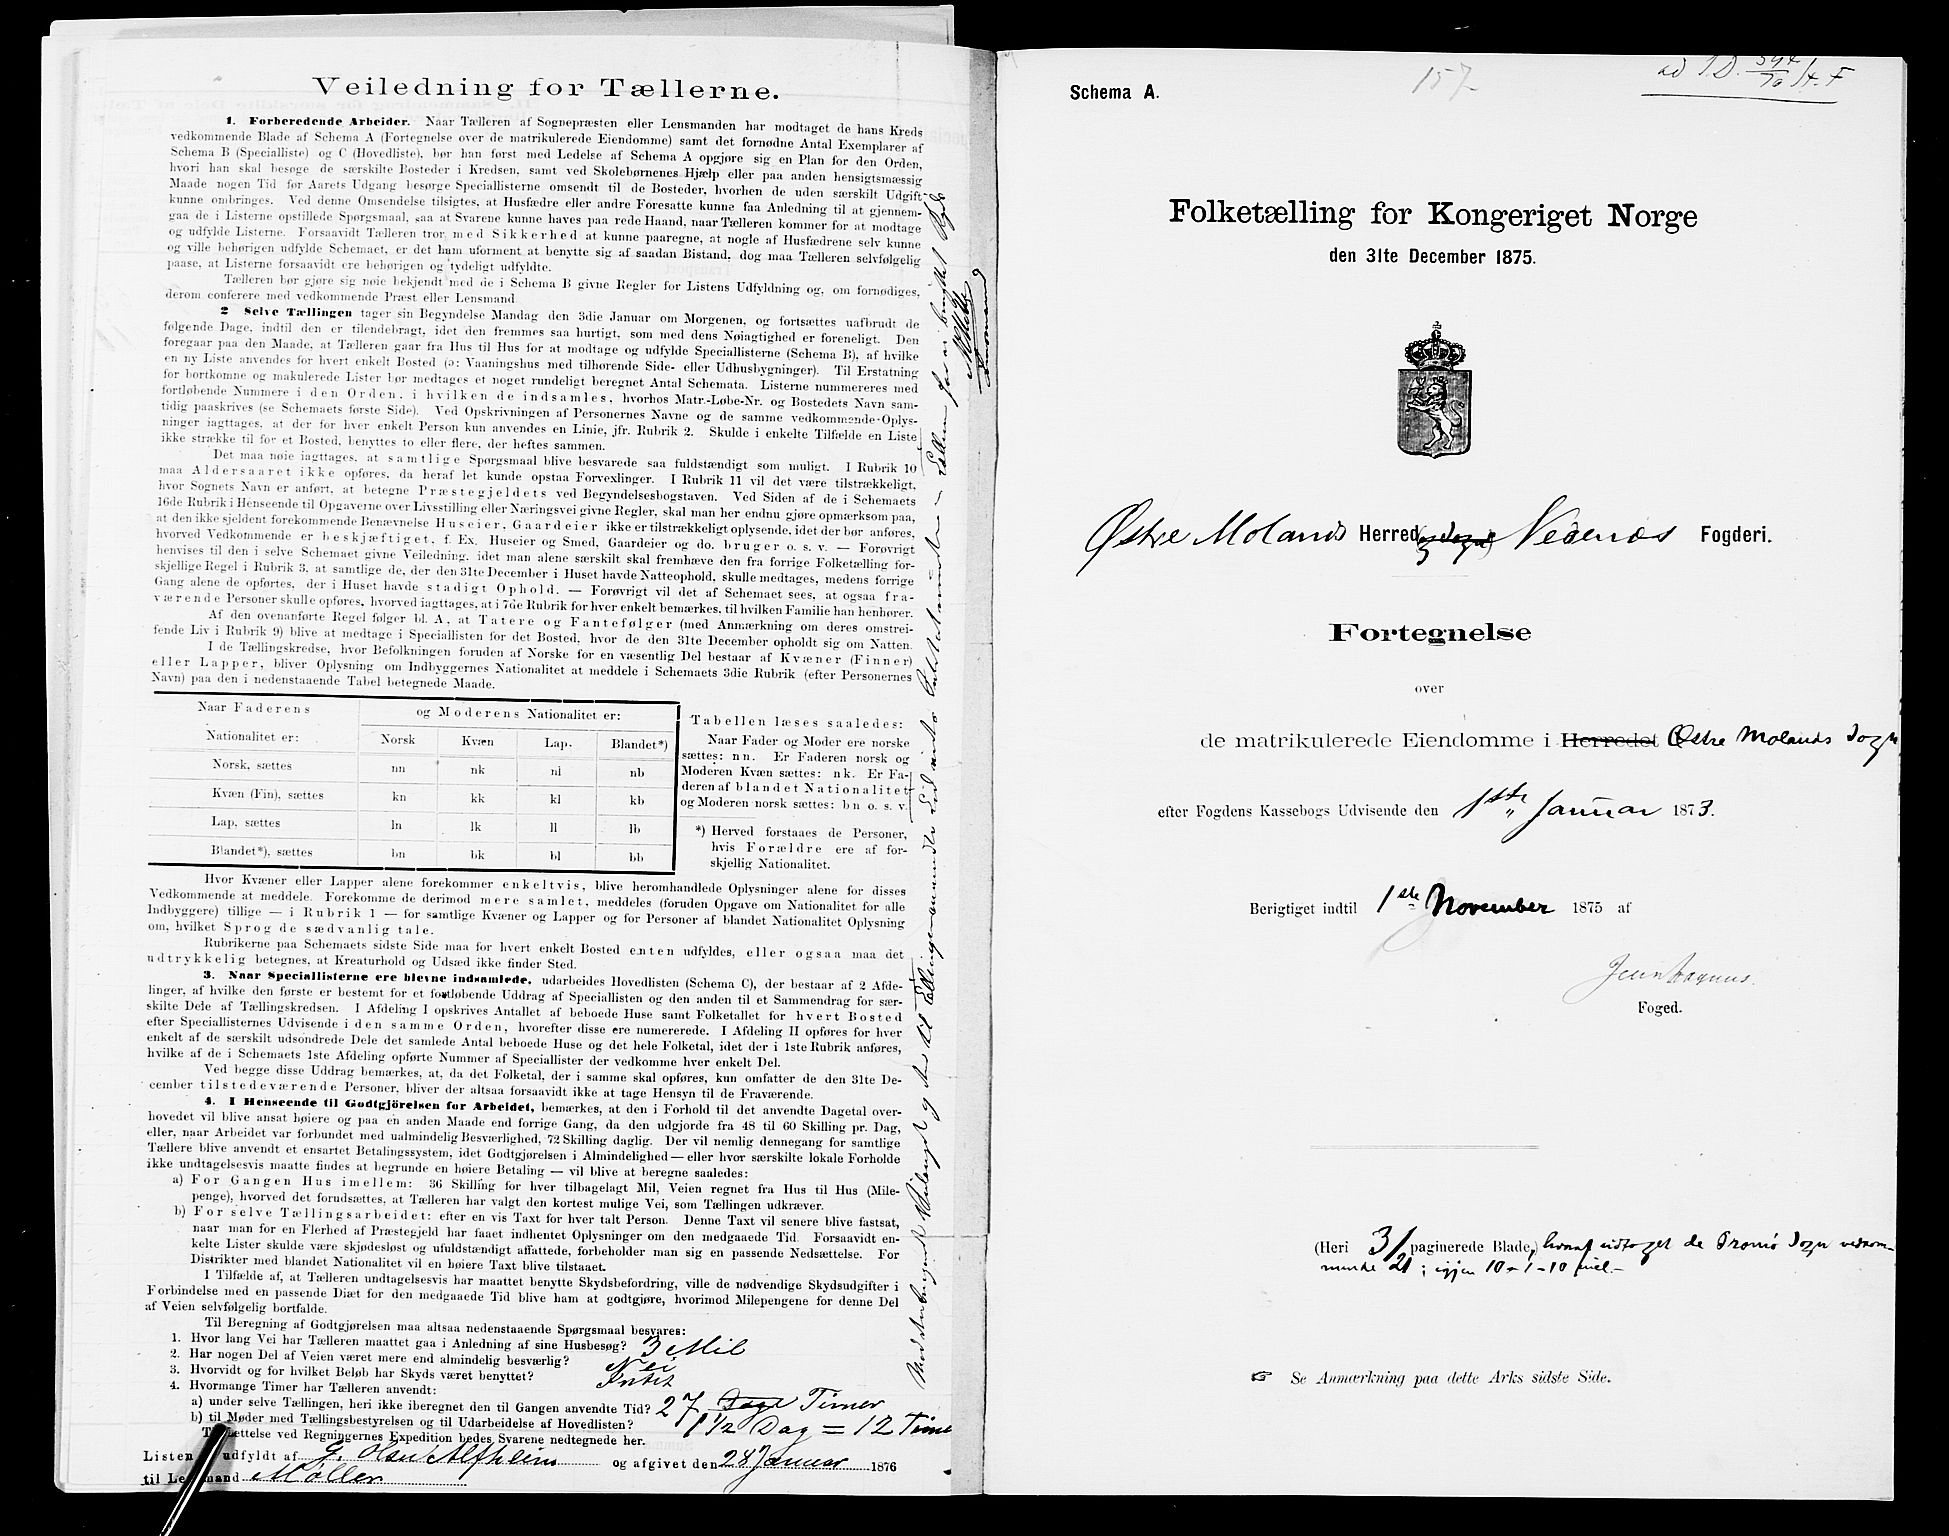 Veiledning for Tællerne.
1. Forberedende Arbeider. Naar Tælleren af Sognepræsten eller Lensmanden har modtaget de hans Kreds
vedkommende Blade af Schema A (Fortegnelse over de matrikulerede Eiendomme) samt det fornødne Antal Exemplarer af
Schema B (Specialliste) og C (Hovedliste), bør han først med Ledelse af Schema A opgjøre sig en Plan for den Orden,
hvori han skal besøge de særskilte Bosteder i Kredsen, samt ved Skolebørnenes Hjælp eller paa anden hensigtsmæssig
Maade nogen Tid før Aarets Udgang besørge Speciallisterne omsendt til de Bosteder, hvorhen de uden særskilt Udgift
kunne ombringes. Ved denne Omsendelse tilsigtes, at Husfædre eller andre Foresatte kunne faa Anledning til at gjennem-
gaa de i Listerne opstillede Spørgsmaal, saa at Svarene kunne haves paa rede Haand, naar Tælleren kommer for at modtage
og udfylde Listerne. Forsaavidt Tælleren tror med Sikkerhed at kunne paaregne, at nogle af Husfædrene selv kunne
og ville behørigen udfylde Schemaet, er det ham uforment at benytte sig af saadan Bistand, dog maa Tælleren selvfølgelig
paase, at Listerne forsaavidt ere behørigen og tydeligt udfyldte.
Tælleren bør gjøre sig nøie bekjendt med de i Schema B givne Regler for Listens Udfyldning og, om fornødiges,
derom conferere med vedkommende Præst eller Lensmand
2 Selve Tællingen tager sin Begyndelse Mandag den 3die Januar om Morgenen, og fortsættes uafbrudt de
følgende Dage, indtil den er tilendebragt, idet den fremmes saa hurtigt, som med dens Nøiagtighed er foreneligt. Den
foregaar paa den Maade, at Tælleren gaar fra Hus til Hus for at modtage og udfylde Speciallisterne (Schema B), af hvilke
en ny Liste anvendes for hvert enkelt Bosted (ɔ: Vaaningshus med tilhørende Side- eller Udhusbygninger). Til Erstatning
for bortkomne og makulerede Lister bør medtages et noget rundeligt beregnet Antal Schemata. Listerne nummereres med
fortløbende Nummere i den Orden, i hvilken de indsamles, hvorhos Matr.-Løbe-Nr. og Bostedets Navn sam-
tidig paaskrives (se Schemaets første Side). Ved Opskrivningen af Personernes Navne og de samme vedkommende Oplys-
ninger iagttages, at der for hver enkelt Person kun anvendes en Linie, jfr. Rubrik 2. Skulde i enkelte Tilfælde en Liste
ikke strække til for et Bosted, benyttes to eller flere, der heftes sammen.
Det maa nøie iagttages, at samtlige Spørgsmaal blive besvarede saa fuldstændigt som muligt. I Rubrik 10
maa Aldersaaret ikke opføres, da heraf let kunde opstaa Forvexlinger. I Rubrik 11 vil det være tilstrækkeligt,
hvor Sognets Navn er anført, at betegne Præstegjeldets ved Begyndelsesbogstaven. Ved Siden af de i Schemaets
16de Rubrik i Henseende til Opgaverne over Livsstilling eller Næringsvei givne Regler, skal man her endnu gjøre opmærksom paa,
at den ikke sjeldent forekommende Benævnelse Huseier, Gaardeier ikke er tilstrækkeligt oplysende, idet der bør anføres,
hvorved Vedkommende er beskjæftiget, f. Ex. Huseier og Smed, Gaardeier og do. bruger o. s. v. — Forøvrigt
henvises til den i selve Schemaet givne Veiledning, idet man alene særskilt skal fremhæve den fra forrige Folketælling for-
skjellige Regel i Rubrik 3, at samtlige de, der den 31te December i Huset havde Natteophold, skulle medtages, medens forrige
Gang alene de opførtes, der i Huset havde stadigt Ophold. — Forøvrigt vil det af Schemaet sees, at ogsaa fra-
værende Personer skulle opføres, hvorved iagttages, at i 7de Rubrik for hver enkelt bemærkes, til hvilken Familie han henhører.
Af den ovenanførte Regel følger bl. A. at Tatere og Fantefølger (med Anmærkning om deres omstrei-
fende Liv i Rubrik 9) blive at medtage i Speciallisten for det Bosted, hvor de den 31te December opholdt sig om Natten.
I de Tællingskredse, hvor Befolkningen foruden af Norske for en væsentlig Del bestaar af Kvæner (Finner)
eller Lapper, bliver Oplysning om Indbyggernes Nationalitet at meddele i Schemaets 3die Rubrik (efter Personernes
Navn) paa den i nedenstaaende Tabel betegnede Maade.
Naar Faderens og Moderens Nationalitet er:
Nationalitet er: Norsk Kvæn Lap. Blandet*)
Norsk, sættes nn nk nl nb
Kvæn (Fin), sættes kn kk kl kb
Lap, sættes ln lk ll lb
Blandet*), sættes bn bk bl bb
Tabellen læses saaledes:
Naar Fader og Moder ere norske
sættes: nn. Er Faderen norsk og
Moderen Kvæn sættes: nk. Er Fa-
deren af blandet Nationalitet
og Moderen norsk sættes: bn o. s. v.
*) Herved forstaaes de Personer,
hvis Forældre ere af for-
skjellig Nationalitet.
Hvor Kvæner eller Lapper alene forekommer enkeltvis, blive heromhandlede Oplysninger alene for disses
Vedkommende at meddele. Forekomme de derimod mere samlet, meddeles (foruden Opgave om Nationalitet for alle
Indbyggere) tillige — i Rubrik 1 — for samtlige Kvæner og Lapper og for Personer af blandet Nationalitet Oplysning
om, hvilket Sprog de sædvanlig tale.
Rubrikerne paa Schemaets sidste Side maa for hvert enkelt Bosted enten udfyldes, eller ogsaa maa det
udtrykkelig betegnes, at Kreaturhold og Udsæd ikke finder Sted.
3. Naar Speciallisterne ere blevne indsamlede, udarbeides Hovedlisten (Schema C), der bestaar af 2 Afde-
linger, af hvilke den første er bestemt for et fortløbende Uddrag af Speciallisten og den anden til et Sammendrag for sær-
skilte Dele af Tællingskredsen. I Afdeling I opskrives Antallet af beboede Huse samt Folketallet for hvert Bosted
efter Speciallisternes Udvisende i den samme Orden, hvorefter disse ere numererede. I Afdeling II opføres for hver
enkelt af de særskilt udsondrede Dele det samlede Antal beboede Huse og det hele Folketal, idet der i 1ste Rubrik anføres,
hvilke af de i Schemaets 1ste Afdeling opførte Nummer af Speciallister der vedkomme hver enkelt Del.
Ved begge disse Uddrag bemærkes, at, da det Folketal, der i samme skal opføres, kun omfatter de den 31te De-
cember tilstedeværende Personer, bliver der altsaa forsaavidt ikke at tage Hensyn til de Fraværende.
4. I Henseende til Godtgjörelsen for Arbeidet, bemærkes, at den i Forhold til det anvendte Dagetal over-
hovedet vil blive ansat høiere og paa en anden Maade end forrige Gang, da den udgjorde fra 48 til 60 Skilling pr. Dag,
eller, naar Arbeidet var forbundet med ualmindelig Besværlighed, 72 Skilling daglig. Der vil nemlig dennegang for samtlige
Tællere blive anvendt et ensartet Betalingssystem, idet Godtgjørelsen i Almindelighed — eller hvor særskilte lokale Forholde
ikke undtagelsesvis maatte findes at begrunde en høiere Betaling — vil blive at beregne saaledes:
a) For Gangen Hus imellem: 36 Skilling for hver tilbagelagt Mil, Veien regnet fra Hus til Hus (Mile-
penge), hvorved det forudsættes, at Tælleren har valgt den kortest mulige Vei, som Tællingen udkræver.
b) For selve Tællingsarbeidet: efter en vis Taxt for hver talt Person. Denne Taxt vil senere blive fastsat,
naar man for en Flerhed af Præstegjeld har faaet indhentet Oplysninger om den medgaaede Tid. Forsaavidt en-
kelte Lister skulde være skjødesløst og ufuldstændigt affattede, forbeholder man sig en passende Nedsættelse. For
Distrikter med blandet Nationalitet vil en høiere Taxt blive tilstaaet.
I Tilfælde af, at Tælleren undtagelsesvis har maattet benytte Skydsbefordring, ville de nødvendige Skydsudgifter i
Forbindelse med en passende Diæt for den medgaaede Tid blive ham at godtgjøre, hvorimod Milepengene for denne Del
af Veien selvfølgelig bortfalde.
Til Beregning af Godtgjørelsen maa altsaa nedenstaaende Spørgsmaal besvares:
1. Hvor lang Vei har Tælleren maattet gaa i Anledning af sine Husbesøg? 3 Mil
2. Har nogen Del af Veien været mere end almindelig besværlig? Nei
3. Hvorvidt og for hvilket Beløb har Skyds været benyttet? Intet
4. Hvormange Timer har Tælleren anvendt:
a) under selve Tællingen, heri ikke iberegnet den til Gangen anvendte Tid? 27 Dage Timer
b) til Møder med Tællingsbestyrelsen og til Udarbeidelse af Hovedlisten? 1 1/2 Dag = 12 Time
Lettelse ved Regningernes Expedition bedes Svarene nedtegnede her.
Listen udfyldt af G. Olsen Alfheim og afgivet den 28 Januar 1876
til Lensmand Møller
Schema A.
157
Folketælling for Kongeriget Norge
den 31te December 1875.
Østre Molands Herred (og Sogn) Nedenæs Fogderi.
Fortegnelse
over
de matrikulerede Eiendomme i Herredet Østre Molands Sogn
efter Fogdens Kassebogs Udvisende den 1ste Januar 1873.
Berigtiget indtil 1ste November 1875 af
Foged.
(Heri 31 paginerede Blade,) hvoraf udtaget de Tromø Sogn vedkom-
mende 21; igjen 10-1-10
Se Anmærkning paa dette Arks sidste Side.